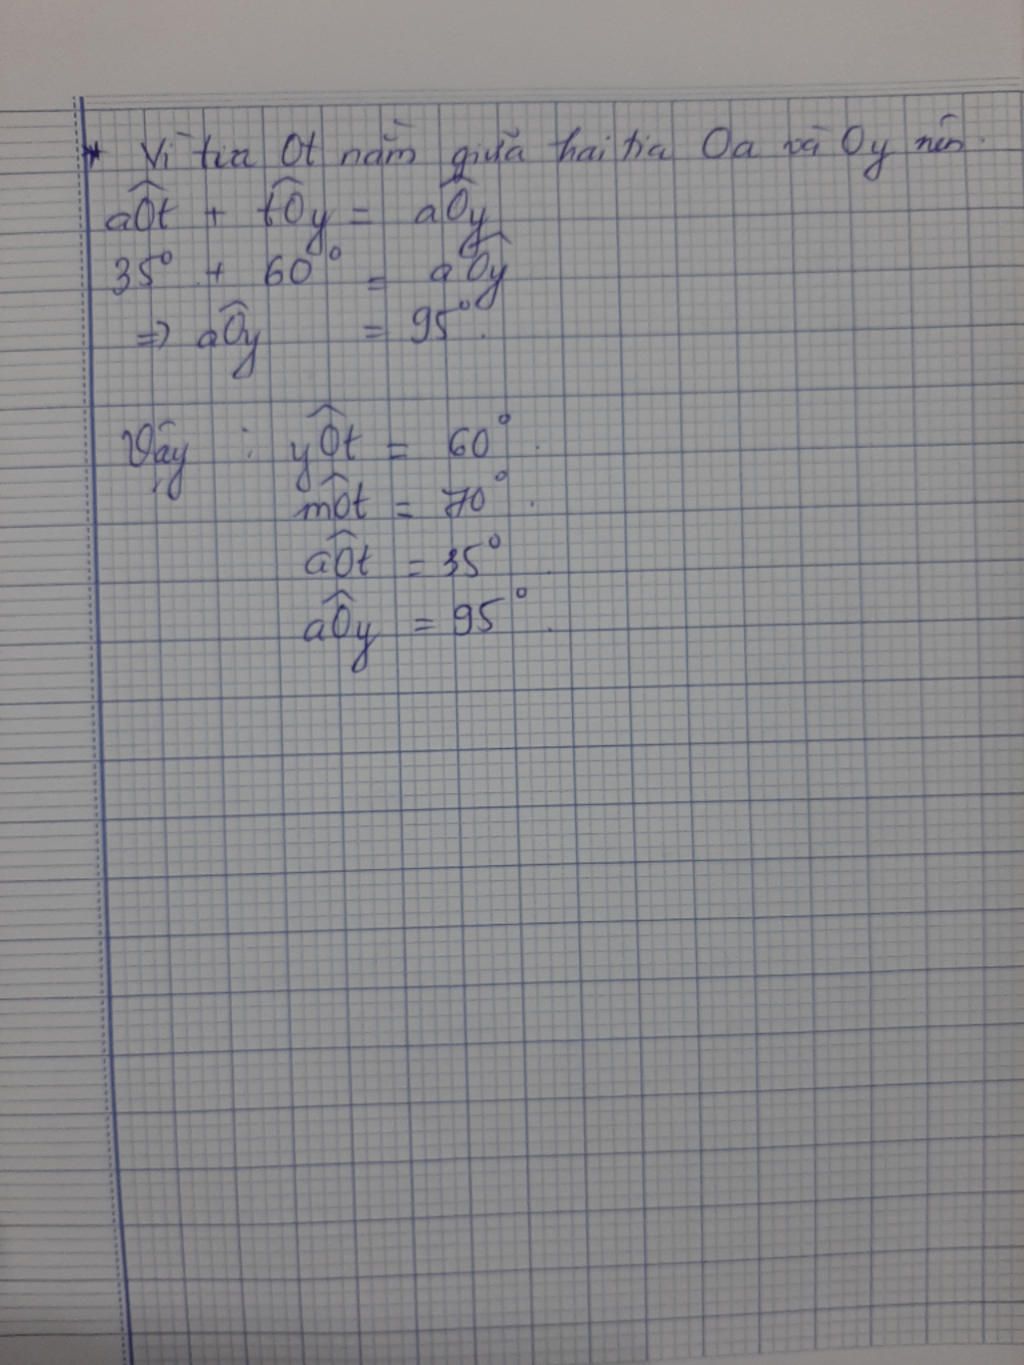 * Vì tia Ot nằm giữa hai tia Oa và Oy nên.
aÔt + tÔy = aÔy
35° + 60° = aÔy
=> aÔy = 95°.
Vậy : yÔt = 60°.
mÔt = 70°.
aÔt = 35°.
aÔy = 95°.